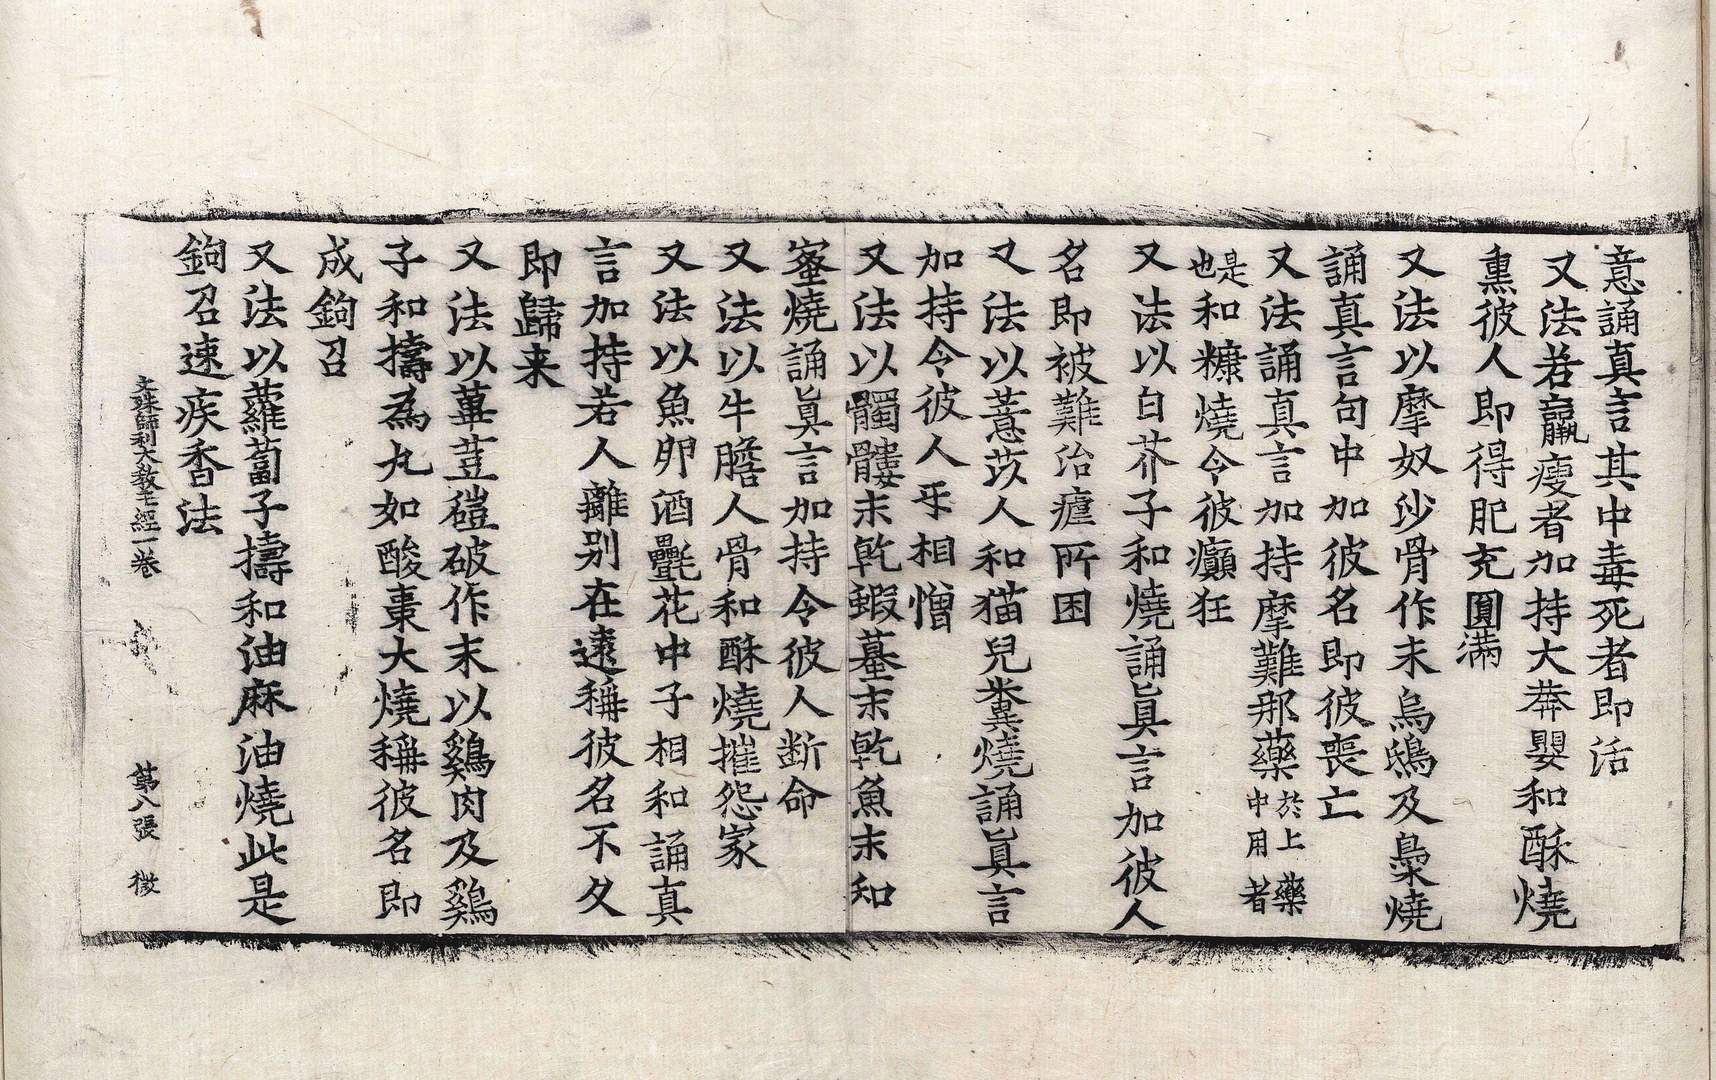 意誦真言其中毒死者即活
又法若羸瘦者加持大莽嬰和酥燒
熏彼人即得肥充圓滿
又法以摩奴沙骨作末烏鴟及梟燒
誦真言句中加彼名即彼喪亡
又法誦真言加持摩難那藥於上藥中用者
是也和糠燒令彼癲狂
又法以白芥子和燒誦眞言加彼人
名即被難治瘧所困
又法以薏苡人和猫兒糞燒誦眞言
加持令彼人乎相憎
又法以髑髏末乹蝦蟇末乹魚末和
蜜燒誦眞言加持令彼人断命
又法以牛膽人骨和酥燒摧怨家
又法以魚卵酒㲲花中子相和誦真
言加持若人離别在遠稱彼名不久
即歸来
又法以蓽荳磑破作末以鷄肉及鷄
子和擣為丸如酸棗大燒稱彼名即
成鉤召
又法以蘿蔔子擣和油麻油燒此是
鉤召速疾香法
文殊師利大教王經一卷 第八張 微